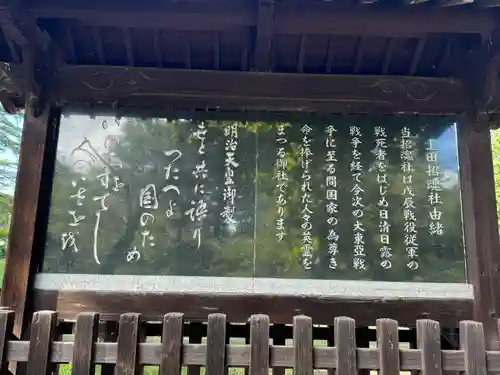 上田招魂社由緒
当招魂社は戊辰戦役従軍の
戦死者をはじめ日清日露の
戦争を経て今次の大東亞戰
争に至る間国家の為尊き
命を捧げられた人々の英霊を
まつる御社であります
明治天皇御製
世と共に語り
つたへよ
国のため
いのちを
すてし
人の